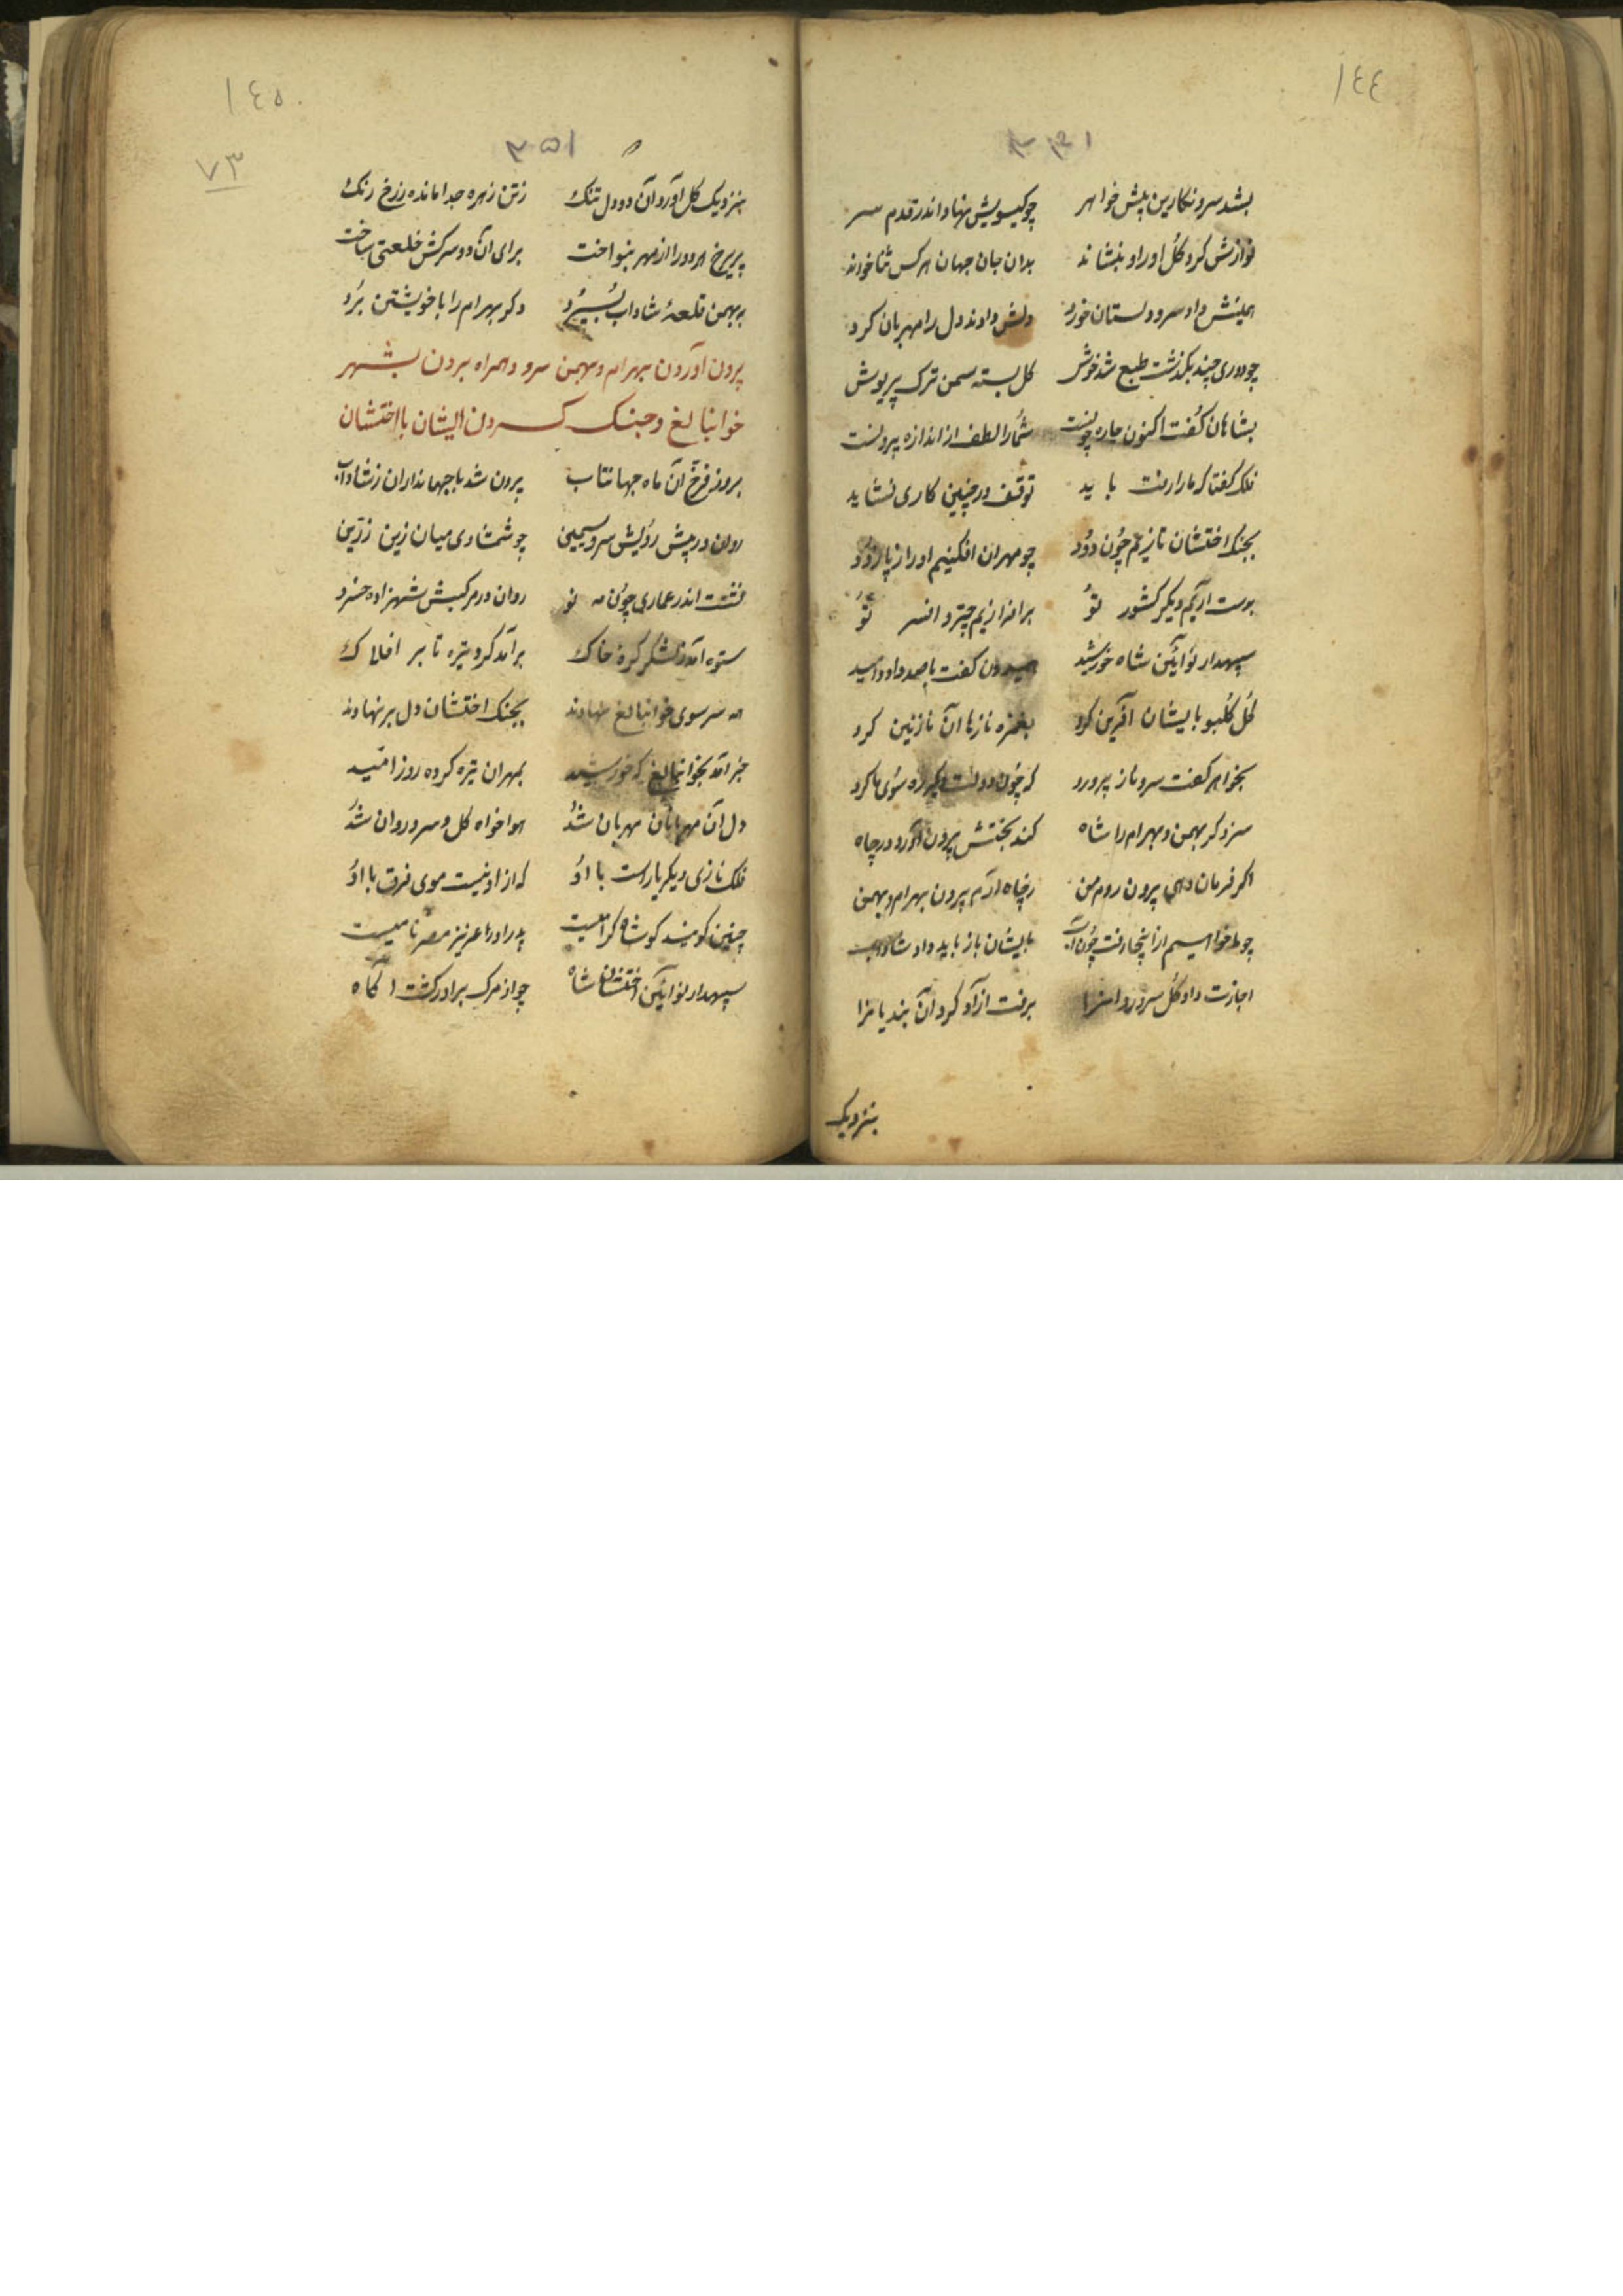 ١٤٤
بشد سرو نکارین پیش خواهر چو کیسویش نهاد اندر قدم سر
نوازش کرد کل او را و بنشاند بدان جان جهان هر کس ثنا خواند
داد سرو دلستان خورد دلش دادند دل را مهربان کرد
چو دوری چند بکذشت طبع شد خوش کل بسته سمن ترک پریوش
بشاهان کفت اکنون چاره چونست شما را لطف از اندازه برونست
فلک کفتا که ما را رفت باید توقف در چنین کاری نشاید
بجنک اختشان تازیم چون دود چو مهران افکنیم او را ز پا زود
بدست آریم دیکر کشور تو برافرازیم چتر و افسر تو
سپهدار نوآئین شاه خورشید کفت با صد داد و امید
کل کلبو بایشان آفرین کرد بغمزه نازها آن نازنین کرد
بخواهر کفت سرو ناز پرورد که چون دولت دکر ره سوی ما کرد
سزد کر بهمن و بهرام را شاه کند بختش برون آورد در چاه
اکر فرمان دهی بیرون روم من ز چاه آرم برون بهرام و بهمن
چو خواهیم از اینجا رفت چون آب بایشان باز باید داد شاداب
اجازت داد کل سرو روان را برفت آزاد کرد آن بندیان را
بنزدیک
١٤٥
١٤٥
٧٣
بنزدیک کل آورد آن دو دل تنک ز تن زهره جدا مانده ز رخ رنک
پریرخ هر دو را از مهر بنواخت برای آن دو سرکش خلعتی ساخت
به بهمن قلعهٔ شاداب بسپرد دکر بهرام را با خویشتن برد
برون آوردن بهرام و بهمن سرو و همراه بردن بشهر
خوانبالغ و جنک کردن ایشان با اختشان
بروز فرخ آن ماه جهانتاب برون شد با جهانداران ز شاداب
روان در پیش رویش سرو سیمین چو شمشادی میان زین زرین
نشست اندر عماری چون مه نو روان در مرکبش شهزاده خسرو
ستوه آمد ز لشکر کرهٔ خاک برآمد کرد تیره تا بر افلاک
همه سر سوی خوانبالغ نهادند بجنک اختشان دل بر نهادند
خبر آمد بخوانبالغ که خورشید بمهران تیره کرده روز امید
دل آن مهربانان مهربان شد هواخواه کل و سرو روان شد
فلک نازی دیکر یارست با او که از او نیست موی فرق با او
چنین کویند کو شاه کرامیست پدر او را عزیز مصر نامیست
سپهدار نوآئین اختشان شاه چو از مرک برادر کشت آکاه